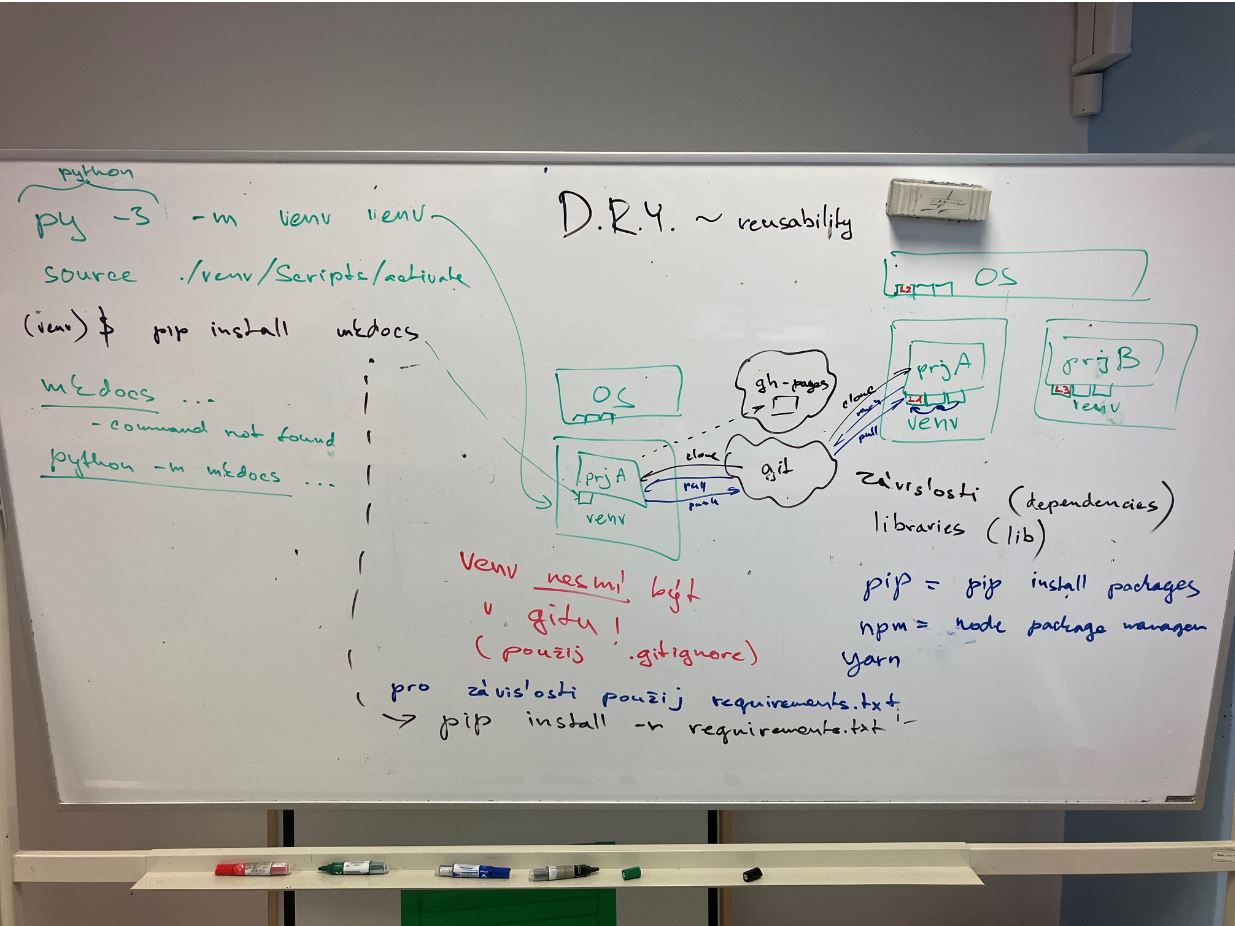 python
py -3 -m venv venv
source ./venv/Scripts/activate
(venv) $ pip install mkdocs
mkdocs ...
- command not found
python -m mkdocs ...
D.R.Y. ~ reusability
OS
L2
prjA
L1
venv
prjB
L3
venv
gh-pages
clone
push
pull
git
OS
prjA
venv
clone
pull
push
závislosti (dependencies)
libraries (lib)
pip = pip install packages
npm = node package manager
yarn
venv nesmí být
v gitu!
(použij .gitignore)
pro závislosti použij requirements.txt
→ pip install -r requirements.txt